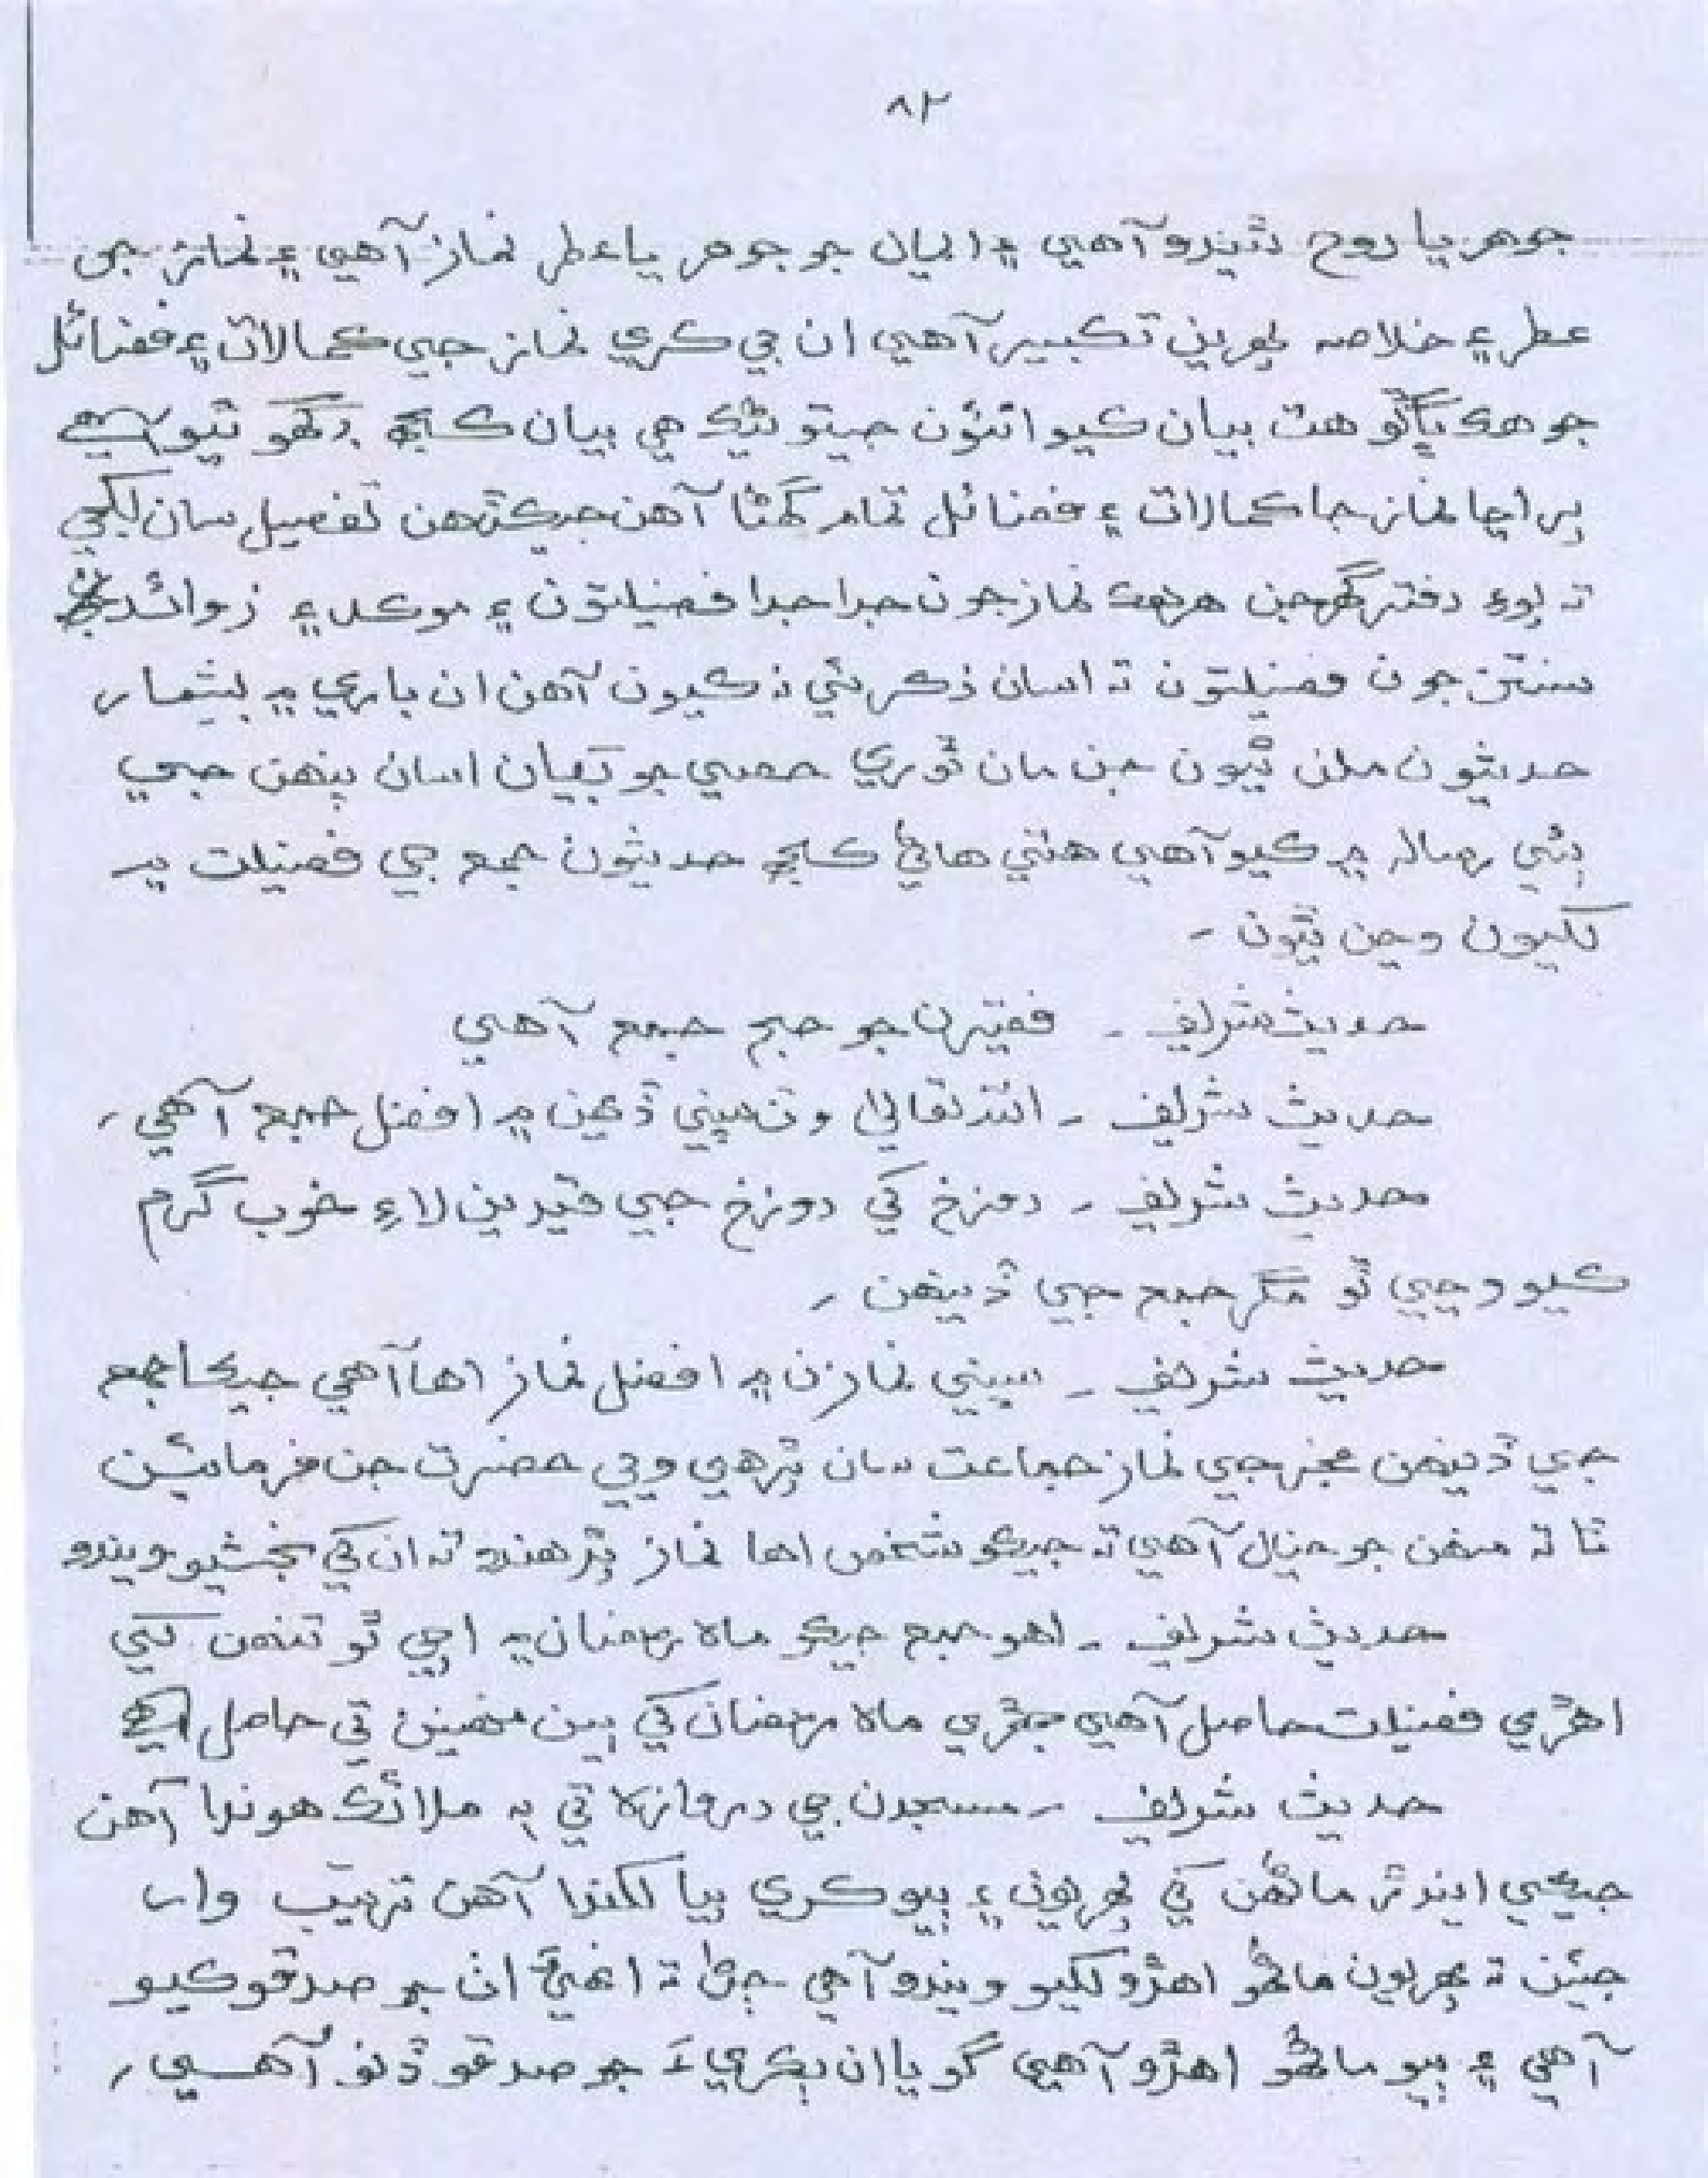 ۸۲
جوهر يا روح ٿيندو آهي ۽ ايمان جو جوهر يا عطر نماز آهي ۽ نماز جي
عطر ۽ خلاصه پهرين تڪبير آهي ان جي ڪري نماز جي ڪمالات ۽ فضائل
جو هڪ ڀاڱو هت بيان ڪيو اٿئون جيتوڻيڪ هي بيان ڪجهه ڊگهو ٿيو آهي
پر اڃا نماز جا ڪمالات ۽ فضائل تمام گهڻا آهن جيڪڏهن تفصيل سان لکجي
ته پوءِ دفتر گهرجن هر هڪ نماز جون جدا جدا فضيلتون ۽ موڪده ۽ زوائد
سنتن جون فضيلتون ته اسان ذڪر ئي نه ڪيون آهن ان باري ۾ بيشمار
حديثون ملن ٿيون جن مان ٿوري حصي جو بيان اسان پنهن جي
ٻئي رساله ۾ ڪيو آهي هتي هاڻي ڪجهه حديثون جمع جي فضيلت ۾
لکيون وڃن ٿيون -
حديث شريف - فقيرن جو حج جمع آهي
حديث شريف - الله تعالیٰ وٽ سڀني ڏهين ۾ افضل جمع آهي -
حديث شريف - دوزخ کي دوزخ جي قيدين لاءِ خوب گرم
ڪيو وڃي ٿو مگر جمع جي ڏينهن -
حديث شريف - سڀني نمازن ۾ افضل نماز اها آهي جيڪا جمع
جي ڏينهن فجر جي نماز جماعت سان پڙهي وڃي حضرت جن فرمائين
ٿا ته منهن جو خيال آهي ته جيڪو شخص اها نماز پڙهندو ته ان کي بخشيو ويندو
حديث شريف - اهو جمع جيڪو ماه رمضان ۾ اچي ٿو تنهن کي
اهڙي فضيلت حاصل آهي جهڙي ماه رمضان کي ٻين مهينن تي حاصل آهي
حديث شريف - مسجدن جي دروازه تي ٻه ملائڪ هوندا آهن
جيڪي ايندڙ ماڻهن کي پهريون ۽ ٻيو ڪري پيا لکندا آهن ترتيب وار
جيئن ته پهريون ماڻهو اهڙو لکيو ويندو آهي جڻ ته انهيءَ ان جو صدقو ڪيو
آهي ۽ ٻيو ماڻهو اهڙو آهي گويا ان ٻڪريءَ جو صدقو ڏنو آهي -